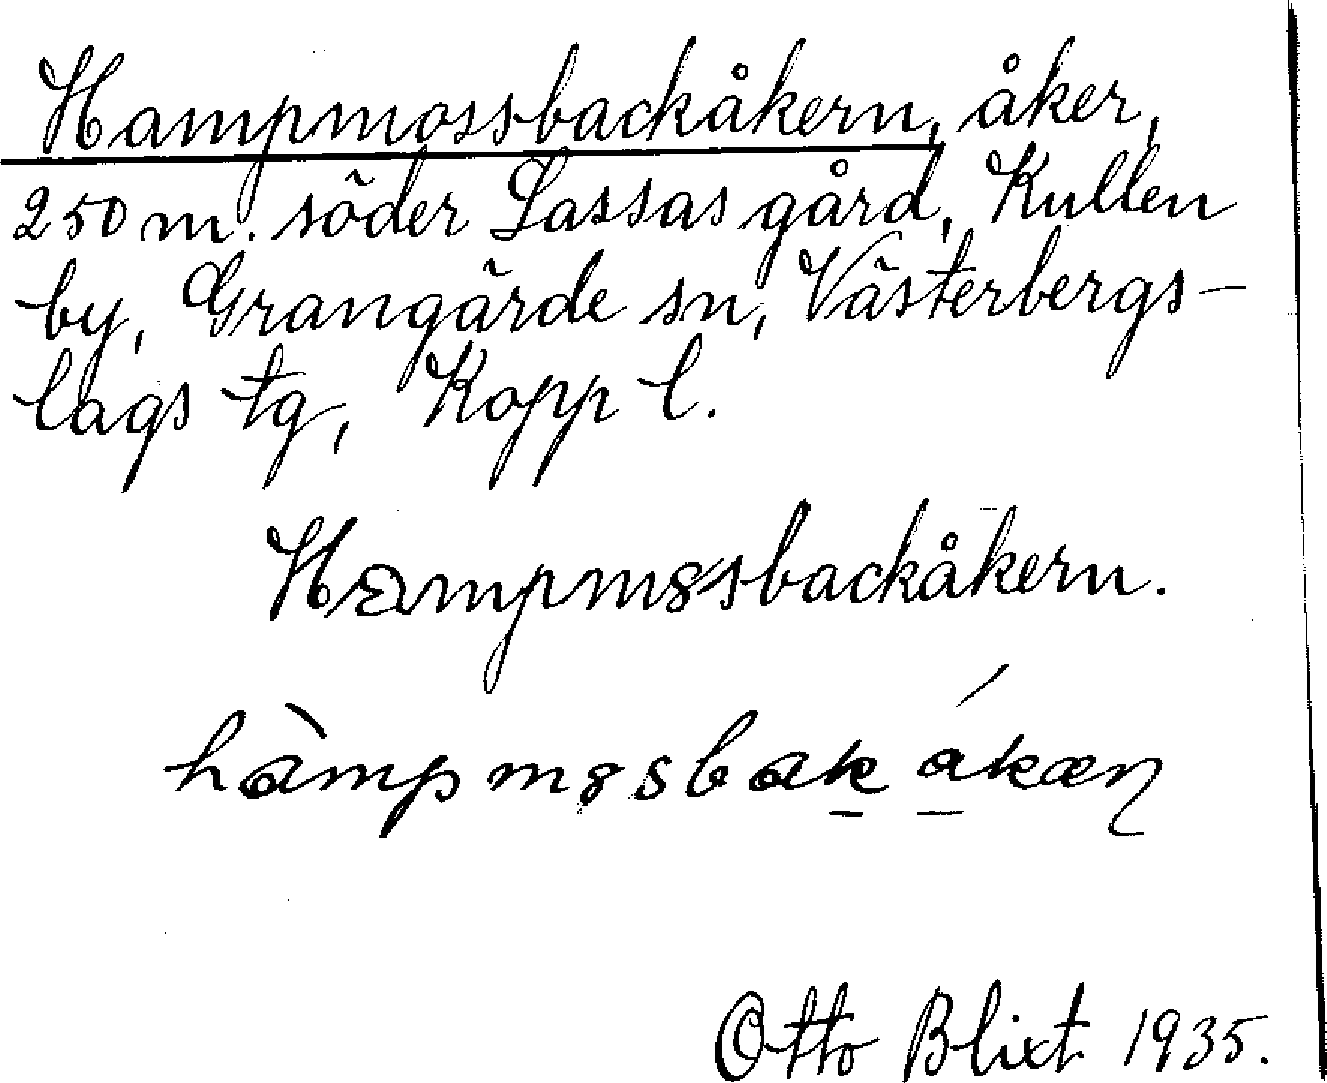 Hampmossbackåkern, åker,
250 m. söder Lassas gård, Kullen
by, Grangärde sn, Västerbergs-
lags tg, Kopp l.
Hampmossbackåkern.
Otto Blixt 1935.